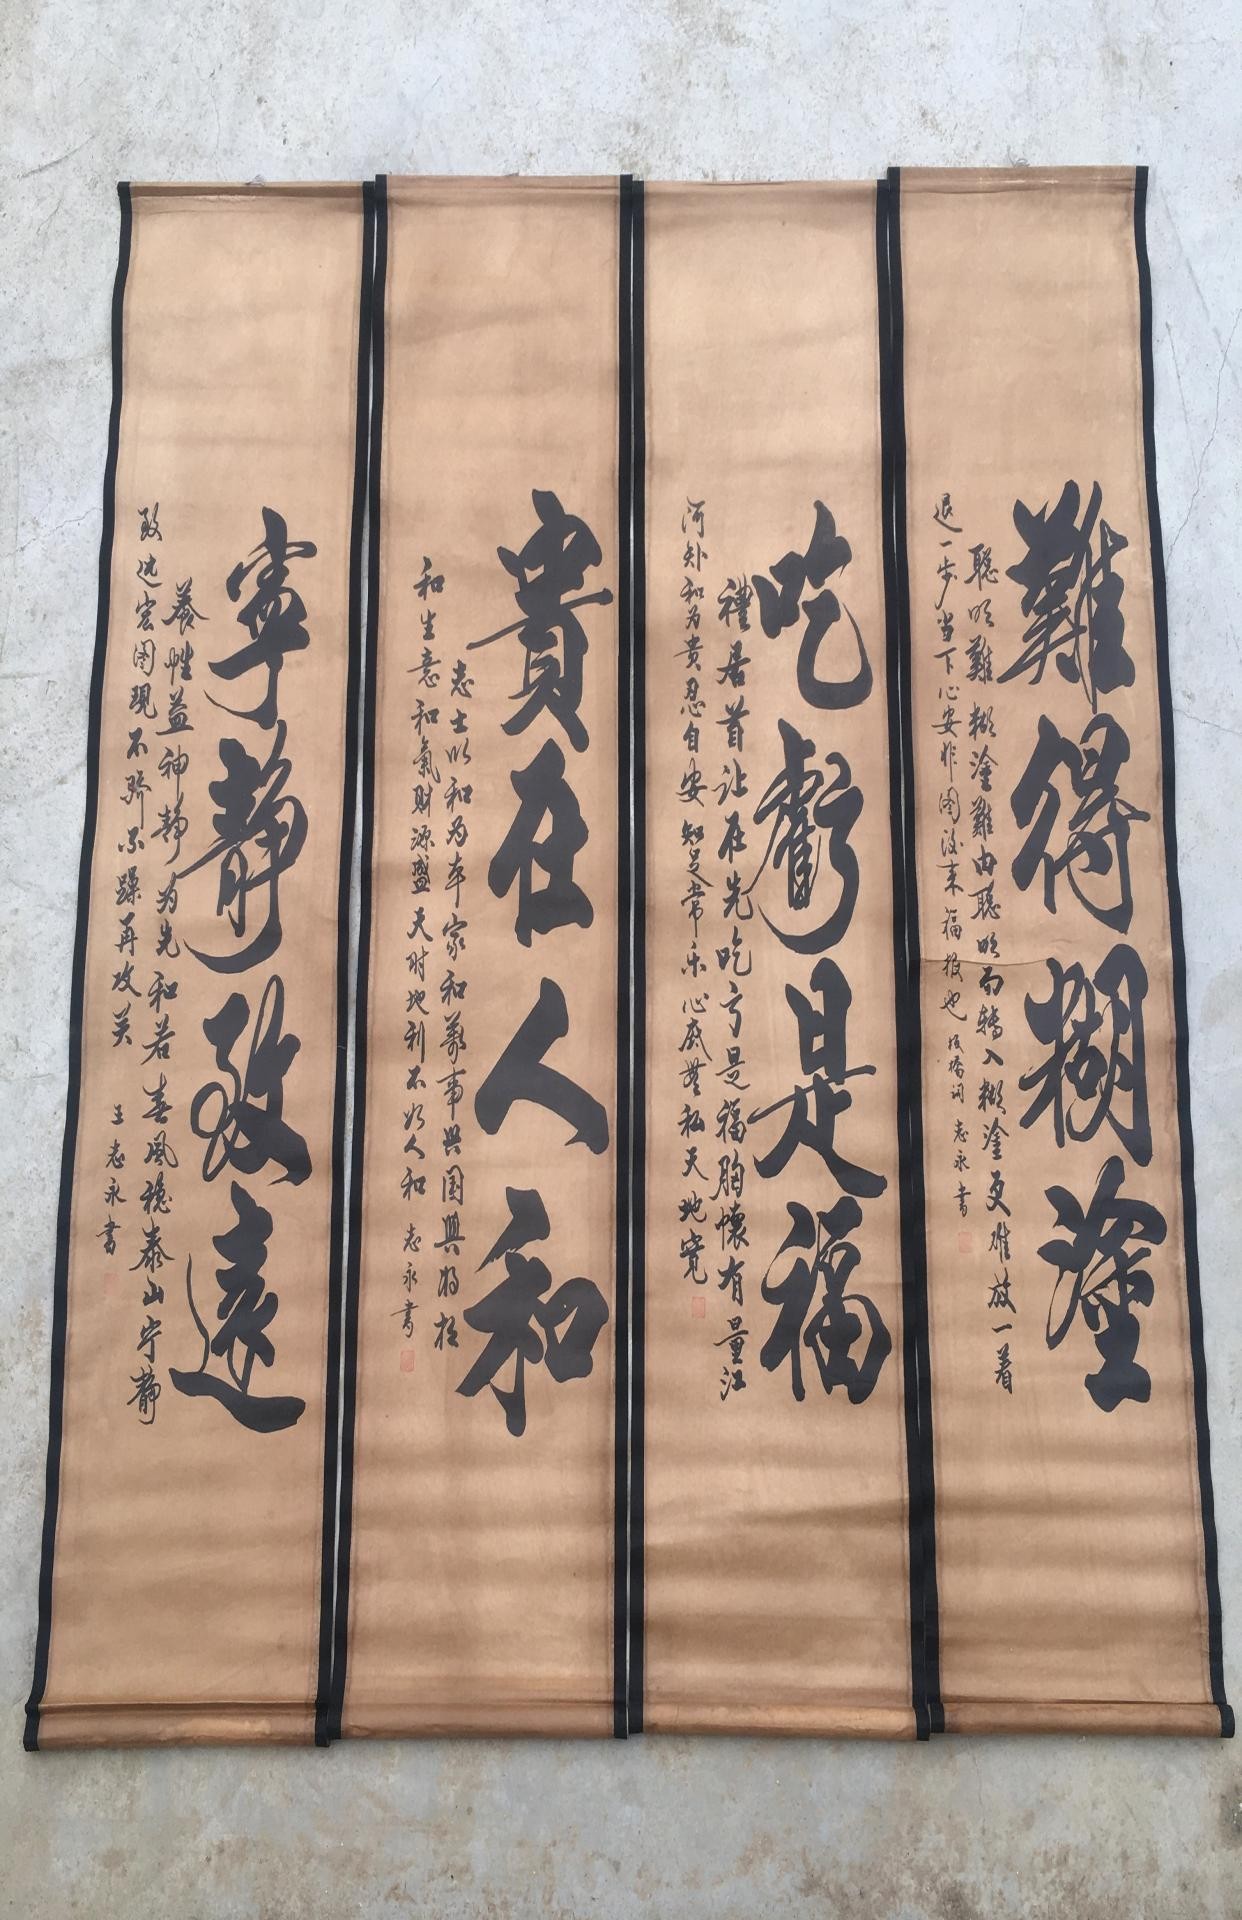 難得糊塗
聪明難糊塗難由聪明而轉入糊塗更难放一着
退一步当下心安非图後来福报也 板橋词 志永書
吃虧是福
禮居首让在先吃亏是福胸懷有量江
河知和为贵忍自安知足常乐心底無私天地寬
貴在人和
志士以和为本家和萬事興国興
和生意和氣財源盛天时地利不如人和 志永書
寧静致遠
養性益神静为先和若春風穩泰山宁静
致远宏图現不骄不躁再攻关 王志永書